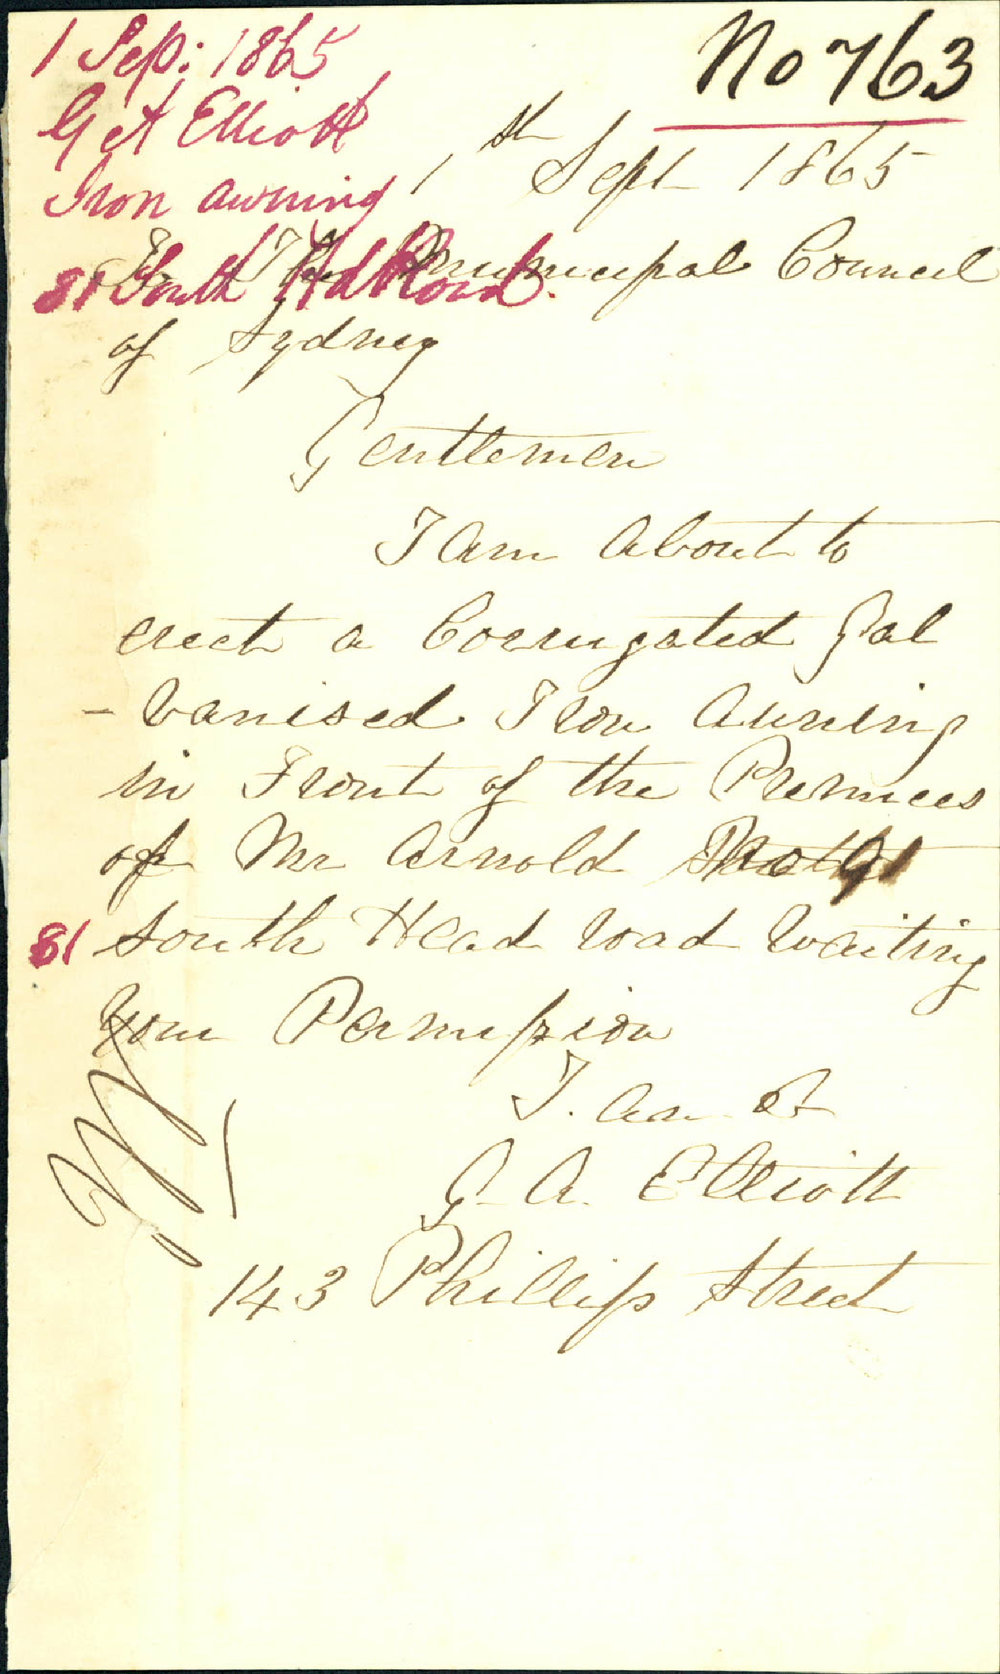 No 763
1 Sep: 1865
G A Elliott
Iron awning
81 South Hd Road.
1th Sept 1865
To The Municipal Council
of Sydney
Gentlemen
I am about to
erect a Corrugated Gal
- vanised Iron Awning
in Front of the Premices
of Mr Arnold
81 South Head road waiting
your Permission
I. am &
G. A. Elliott
143 Phillip Street